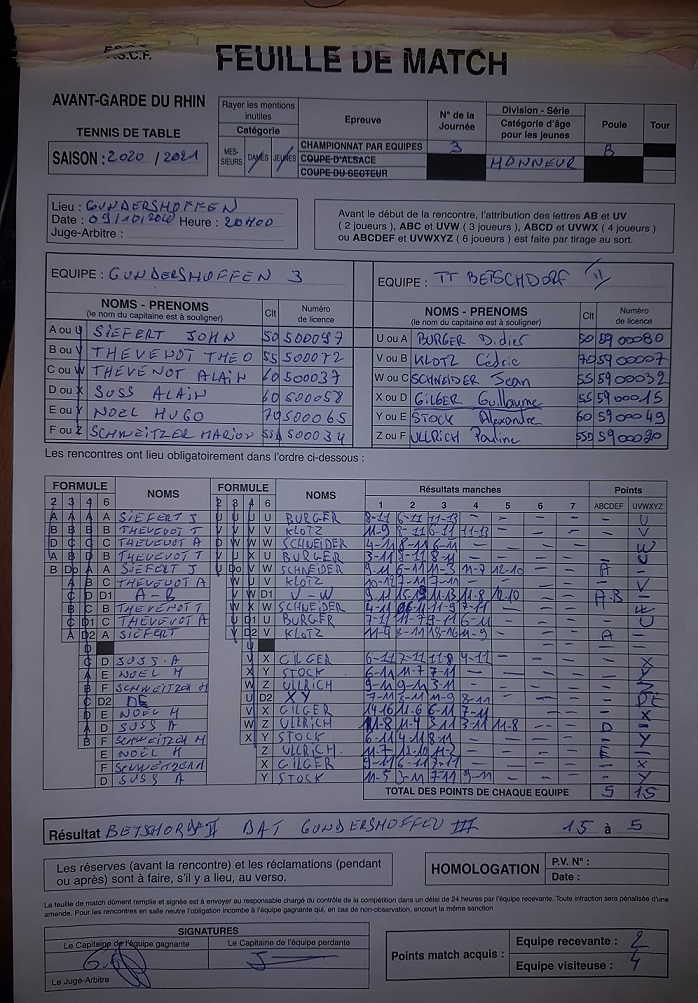 F.S.C.F.
FEUILLE DE MATCH
AVANT-GARDE DU RHIN
TENNIS DE TABLE
SAISON : 2020 / 2021
Rayer les mentions inutiles
Catégorie
MES-SIEURS DAMES JEUNES
Epreuve
N° de la Journée
Division - Série
Catégorie d'âge pour les jeunes
Poule
Tour
CHAMPIONNAT PAR EQUIPES 3 B
COUPE D'ALSACE HONNEUR
COUPE DU SECTEUR
Lieu : GUNDERSHOFFEN
Date : 09/10/2020 Heure : 20H00
Juge-Arbitre :
Avant le début de la rencontre, l'attribution des lettres AB et UV
( 2 joueurs ), ABC et UVW ( 3 joueurs ), ABCD et UVWX ( 4 joueurs )
ou ABCDEF et UVWXYZ ( 6 joueurs ) est faite par tirage au sort.
EQUIPE : GUNDERSHOFFEN 3
NOMS - PRENOMS
(le nom du capitaine est à souligner)
Clt
Numéro de licence
A ou U SIEFERT JOHN 50 500097
B ou V THEVENOT THEO 55 500072
C ou W THEVENOT ALAIN 60 500037
D ou X SUSS ALAIN 60 500058
E ou Y NOEL HUGO 70 500065
F ou Z SCHWEITZER MARION 500034
EQUIPE : TT BETSCHDORF II
NOMS - PRENOMS
(le nom du capitaine est à souligner)
Clt
Numéro de licence
U ou A BURGER Didier 50 5900080
V ou B KLOTZ Cédric 70 5900007
W ou C SCHNEIDER Jean 55 5900032
X ou D GILGER Guillaume 55 5900015
Y ou E STOCK Alexandre 60 5900049
Z ou F ULLRICH Pauline 55D
Les rencontres ont lieu obligatoirement dans l'ordre ci-dessous :
FORMULE
2 3 4 6
NOMS
FORMULE
2 3 4 6
NOMS
Résultats manches
1 2 3 4 5 6 7
Points
ABCDEF UVWXYZ
A A A A SIEFERT J U U U U BURGER 8-11 6-11 11-13 - - - - - U
B B B B THEVENOT T V V V V KLOTZ 11-9 6-11 11-13 - - - - V
D C C C THEVENOT A D W W W SCHNEIDER 4-11 8-11 6-11 - - - - - W
A B D B THEVENOT T U V X U BURGER 3-11 3-11 8-11 - - - - - U
B Do A A SIEFERT J V Do V W SCHNEIDER 11-3 11-7 12-10 - - A -
A B C THEVENOT A W U V KLOTZ 7-11 7-11 - - - - - V
C D D1 A-B V W D1 V-W 9-11 11-8 12-10 - - A-B -
B C B THEVENOT T W X W SCHNEIDER 4-11 11-9 7-11 - - - - W
C D1 C THEVENOT A U D1 U BURGER 7-11 9-11 6-11 - - - - U
A D2 A SIEFERT V D2 V KLOTZ 11-4 18-16 11-9 - - - A -
D U
C D SUSS . A V X GILGER 6-11 7-11 11-8 4-11 - - - - X
A E NOEL H X Y STOCK 6-11 11-7 7-11 - - - -
B F SCHWEITZER M W Z ULLRICH 9-11 9-11 3-11 - - - - - Z
C D2 DE U D2 XY 7-11 11-9 8-11 - - - -
D E NOEL H V X GILGER 14-16 11-6 6-11 7-11 - - - - X
A D SUSS A W Z ULLRICH 11-8 11-4 3-11 3-11 11-8 - - D -
B F SCHWEITZER M X Y STOCK 6-11 4-11 8-11 - - - - - Y
E NOËL H Z ULLRICH. 11-7 12-10 11-2 - - - - E -
F SCHWEITZER M X GILGER 9-11 6-11 7-11 - - - - - X
D SUSS A Y STOCK 11-5 3-11 7-11 9-11 - - - - Y
TOTAL DES POINTS DE CHAQUE EQUIPE 5 15
Résultat BETSCHORF II BAT GUNDERSHOFFEN III 15 à 5
Les réserves (avant la rencontre) et les réclamations (pendant
ou après) sont à faire, s'il y a lieu, au verso.
HOMOLOGATION
P.V. N° :
Date :
La feuille de match dûment remplie et signée est à envoyer au responsable chargé du contrôle de la compétition dans un délai de 24 heures par l'équipe recevante. Toute infraction sera pénalisée d'une
amende. Pour les rencontres en salle neutre l'obligation incombe à l'équipe gagnante qui, en cas de non-observation, encourt la même sanction
SIGNATURES
Le Capitaine de l'équipe gagnante
Le Capitaine de l'équipe perdante
Le Juge-Arbitre
Points match acquis :
Equipe recevante : 2
Equipe visiteuse : 4